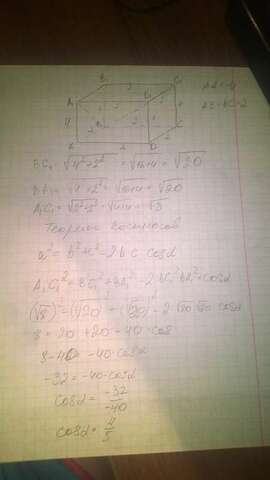 B₁ C₁
A₁ D₁
AA₁=4
AB=BC=2
4
B
C
A 2 D
BC₁ = √4²+2² = √16+4 = √20
BA₁ = √4²+2² = √16+4 = √20
A₁C₁ = √2²+2² = √4+4 = √8
Теорема косинусов
a² = b² + c² - 2bc cosα
A₁C₁² = BC₁² + BA₁² - 2 BC₁ BA₁ · cosα
(√8)² = (√20)² + (√20)² - 2 √20 √20 cosα
8 = 20 + 20 - 40 · cosα
8 - 40 = -40 · cosα
-32 = -40 · cosα
cosα = -32/-40
cosα = 4/5